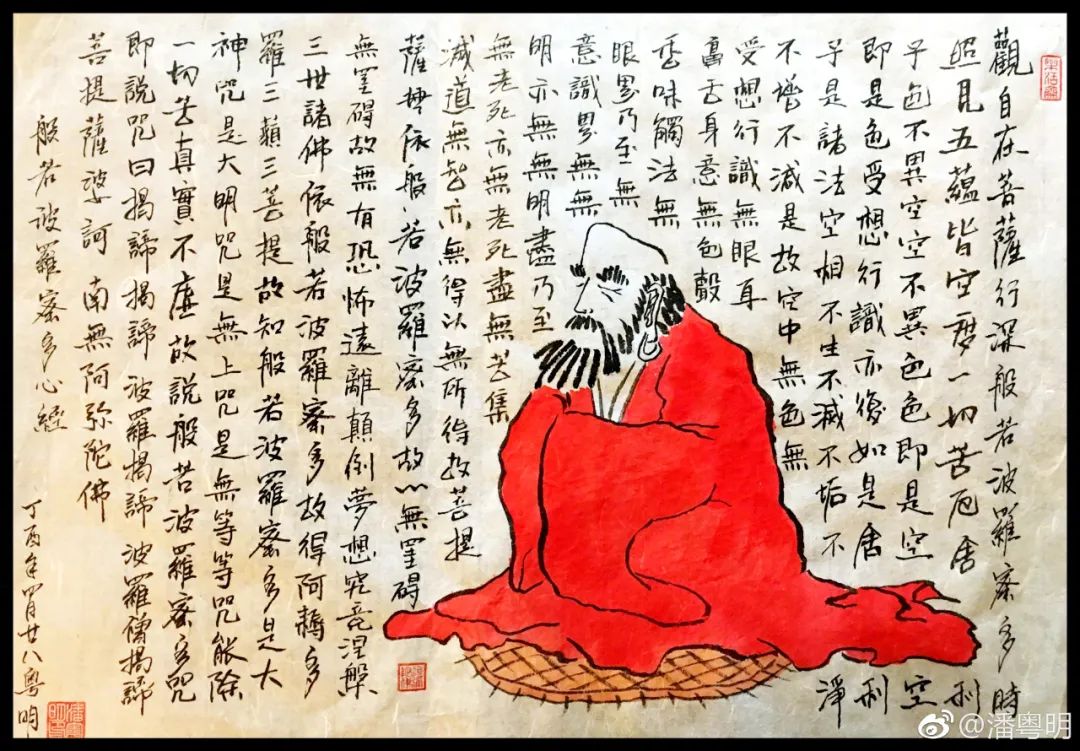 觀自在菩薩行深般若波羅蜜多時
照見五蘊皆空度一切苦厄舍利
子色不異空空不異色色即是空空
即是色受想行識亦復如是舍利
子是諸法空相不生不滅不垢不淨
不增不減是故空中無色無
受想行識無眼耳
鼻舌身意無色聲
香味觸法無
眼界乃至無
意識界無無
明亦無無明盡乃至
無老死亦無老死盡無苦集
滅道無智亦無得以無所得故菩提
薩埵依般若波羅蜜多故心無罣碍
無罣碍故無有恐怖遠離顛倒夢想究竟涅槃
三世諸佛依般若波羅蜜多故得阿耨多
羅三藐三菩提故知般若波羅蜜多是大
神咒是大明咒是無上咒是無等等咒能除
一切苦真實不虛故說般若波羅蜜多咒
即說咒曰揭諦揭諦波羅揭諦波羅僧揭諦
菩提薩婆訶 南無阿弥陀佛
般若波羅蜜多心經
丁酉年四月廿八粤明
@潘粤明